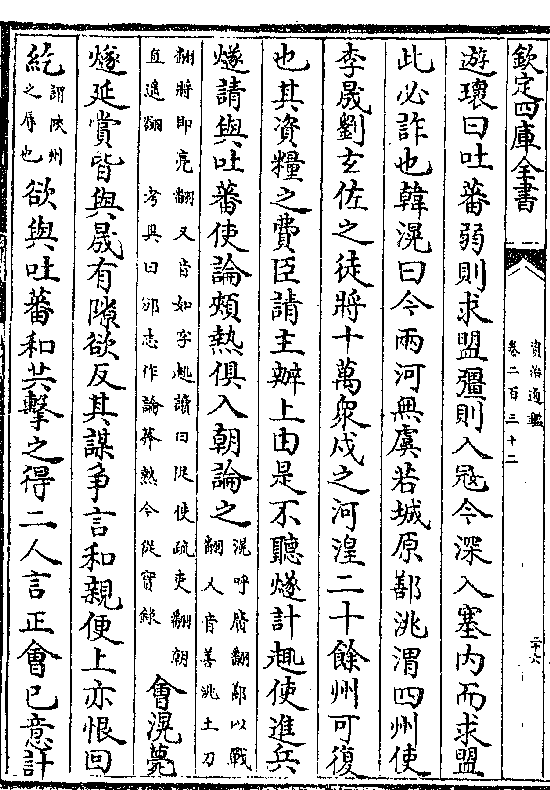 欽定四庫全書
資治通鑑
卷二百三十二
二十六
遊瓌曰吐蕃弱則求盟彊則入冦今深入塞内而求盟
此必詐也韓滉曰今兩河無虞若城原鄯洮渭四州使
李晟劉玄佐之徒將十萬衆戍之河湟二十餘州可復
也其資糧之費臣請主辦上由是不聽燧計趣使進兵
燧請與吐蕃使論頰熱俱入朝論之滉呼廣翻鄯以戰翻又音善洮土刀
翻將即亮翻又音如字趣讀曰促使疏吏翻朝直遥翻 考異曰邠志作論莽熱今從實録會滉薨
燧延賞皆與晟有隙欲反其謀争言和親便上亦恨回
紇謂陜州之辱也欲與吐蕃和共擊之得二人言正會已意計